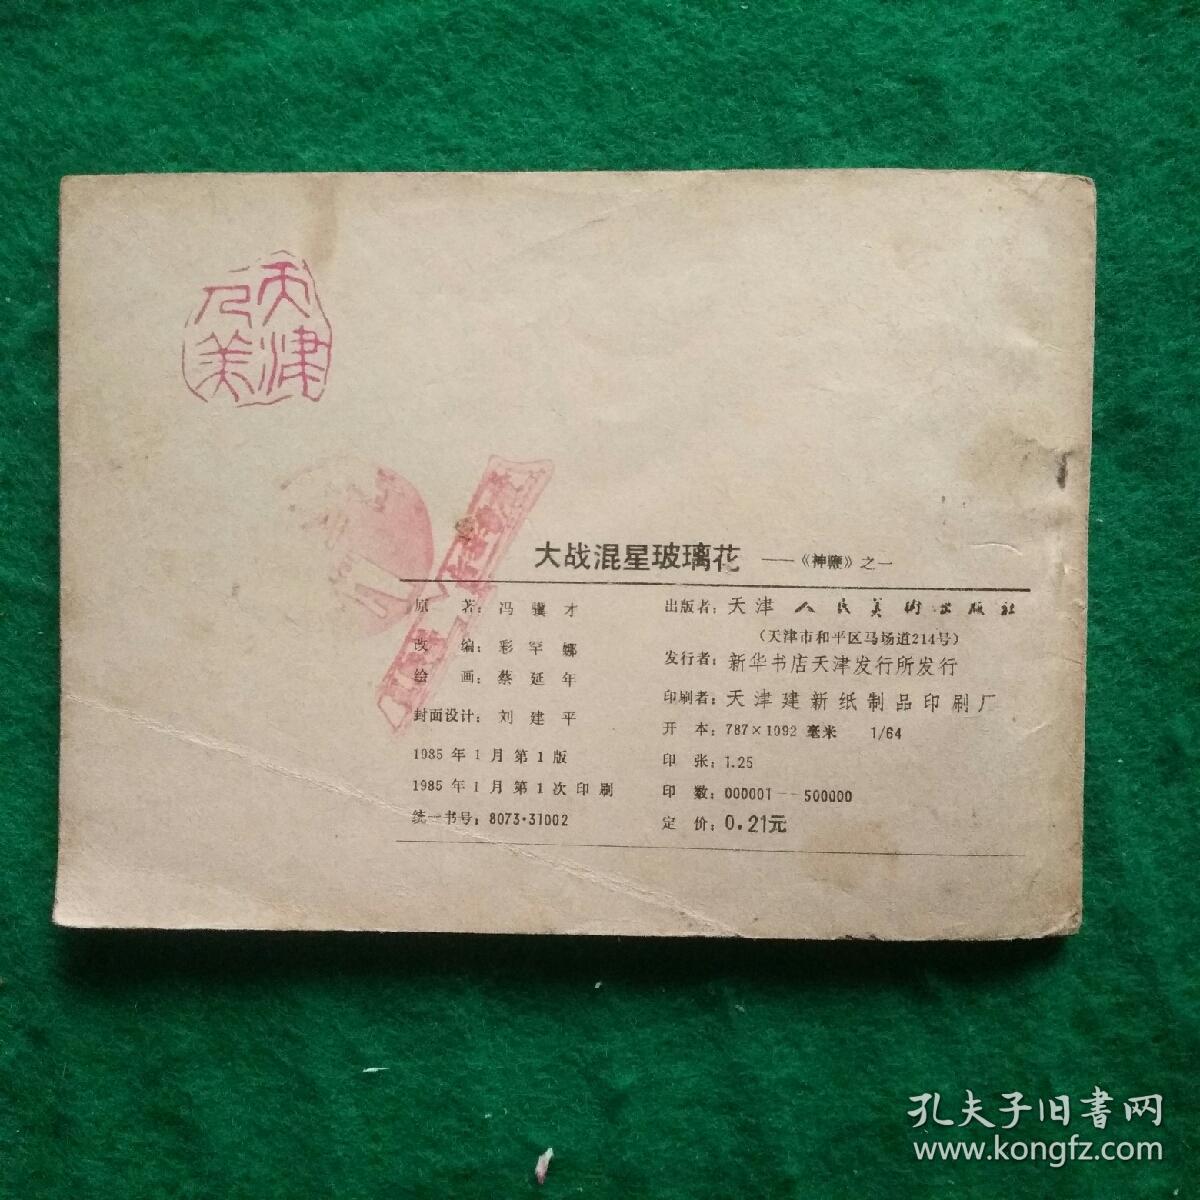 天津
人美
大战混星玻璃花 ——《神鞭》之一
原 著：冯骥才
改 编：彩罕娜
绘 画：蔡延年
封面设计：刘建平
1985年1月第1版
1985年1月第1次印刷
统一书号：8073·31002
出版者：天津人民美術出版社
（天津市和平区马场道214号）
发行者：新华书店天津发行所发行
印刷者：天津建新纸制品印刷厂
开 本：787×1092 毫米 1/64
印 张：1.25
印 数：000001—500000
定 价：0.21元
孔夫子旧書网
www.kongfz.com